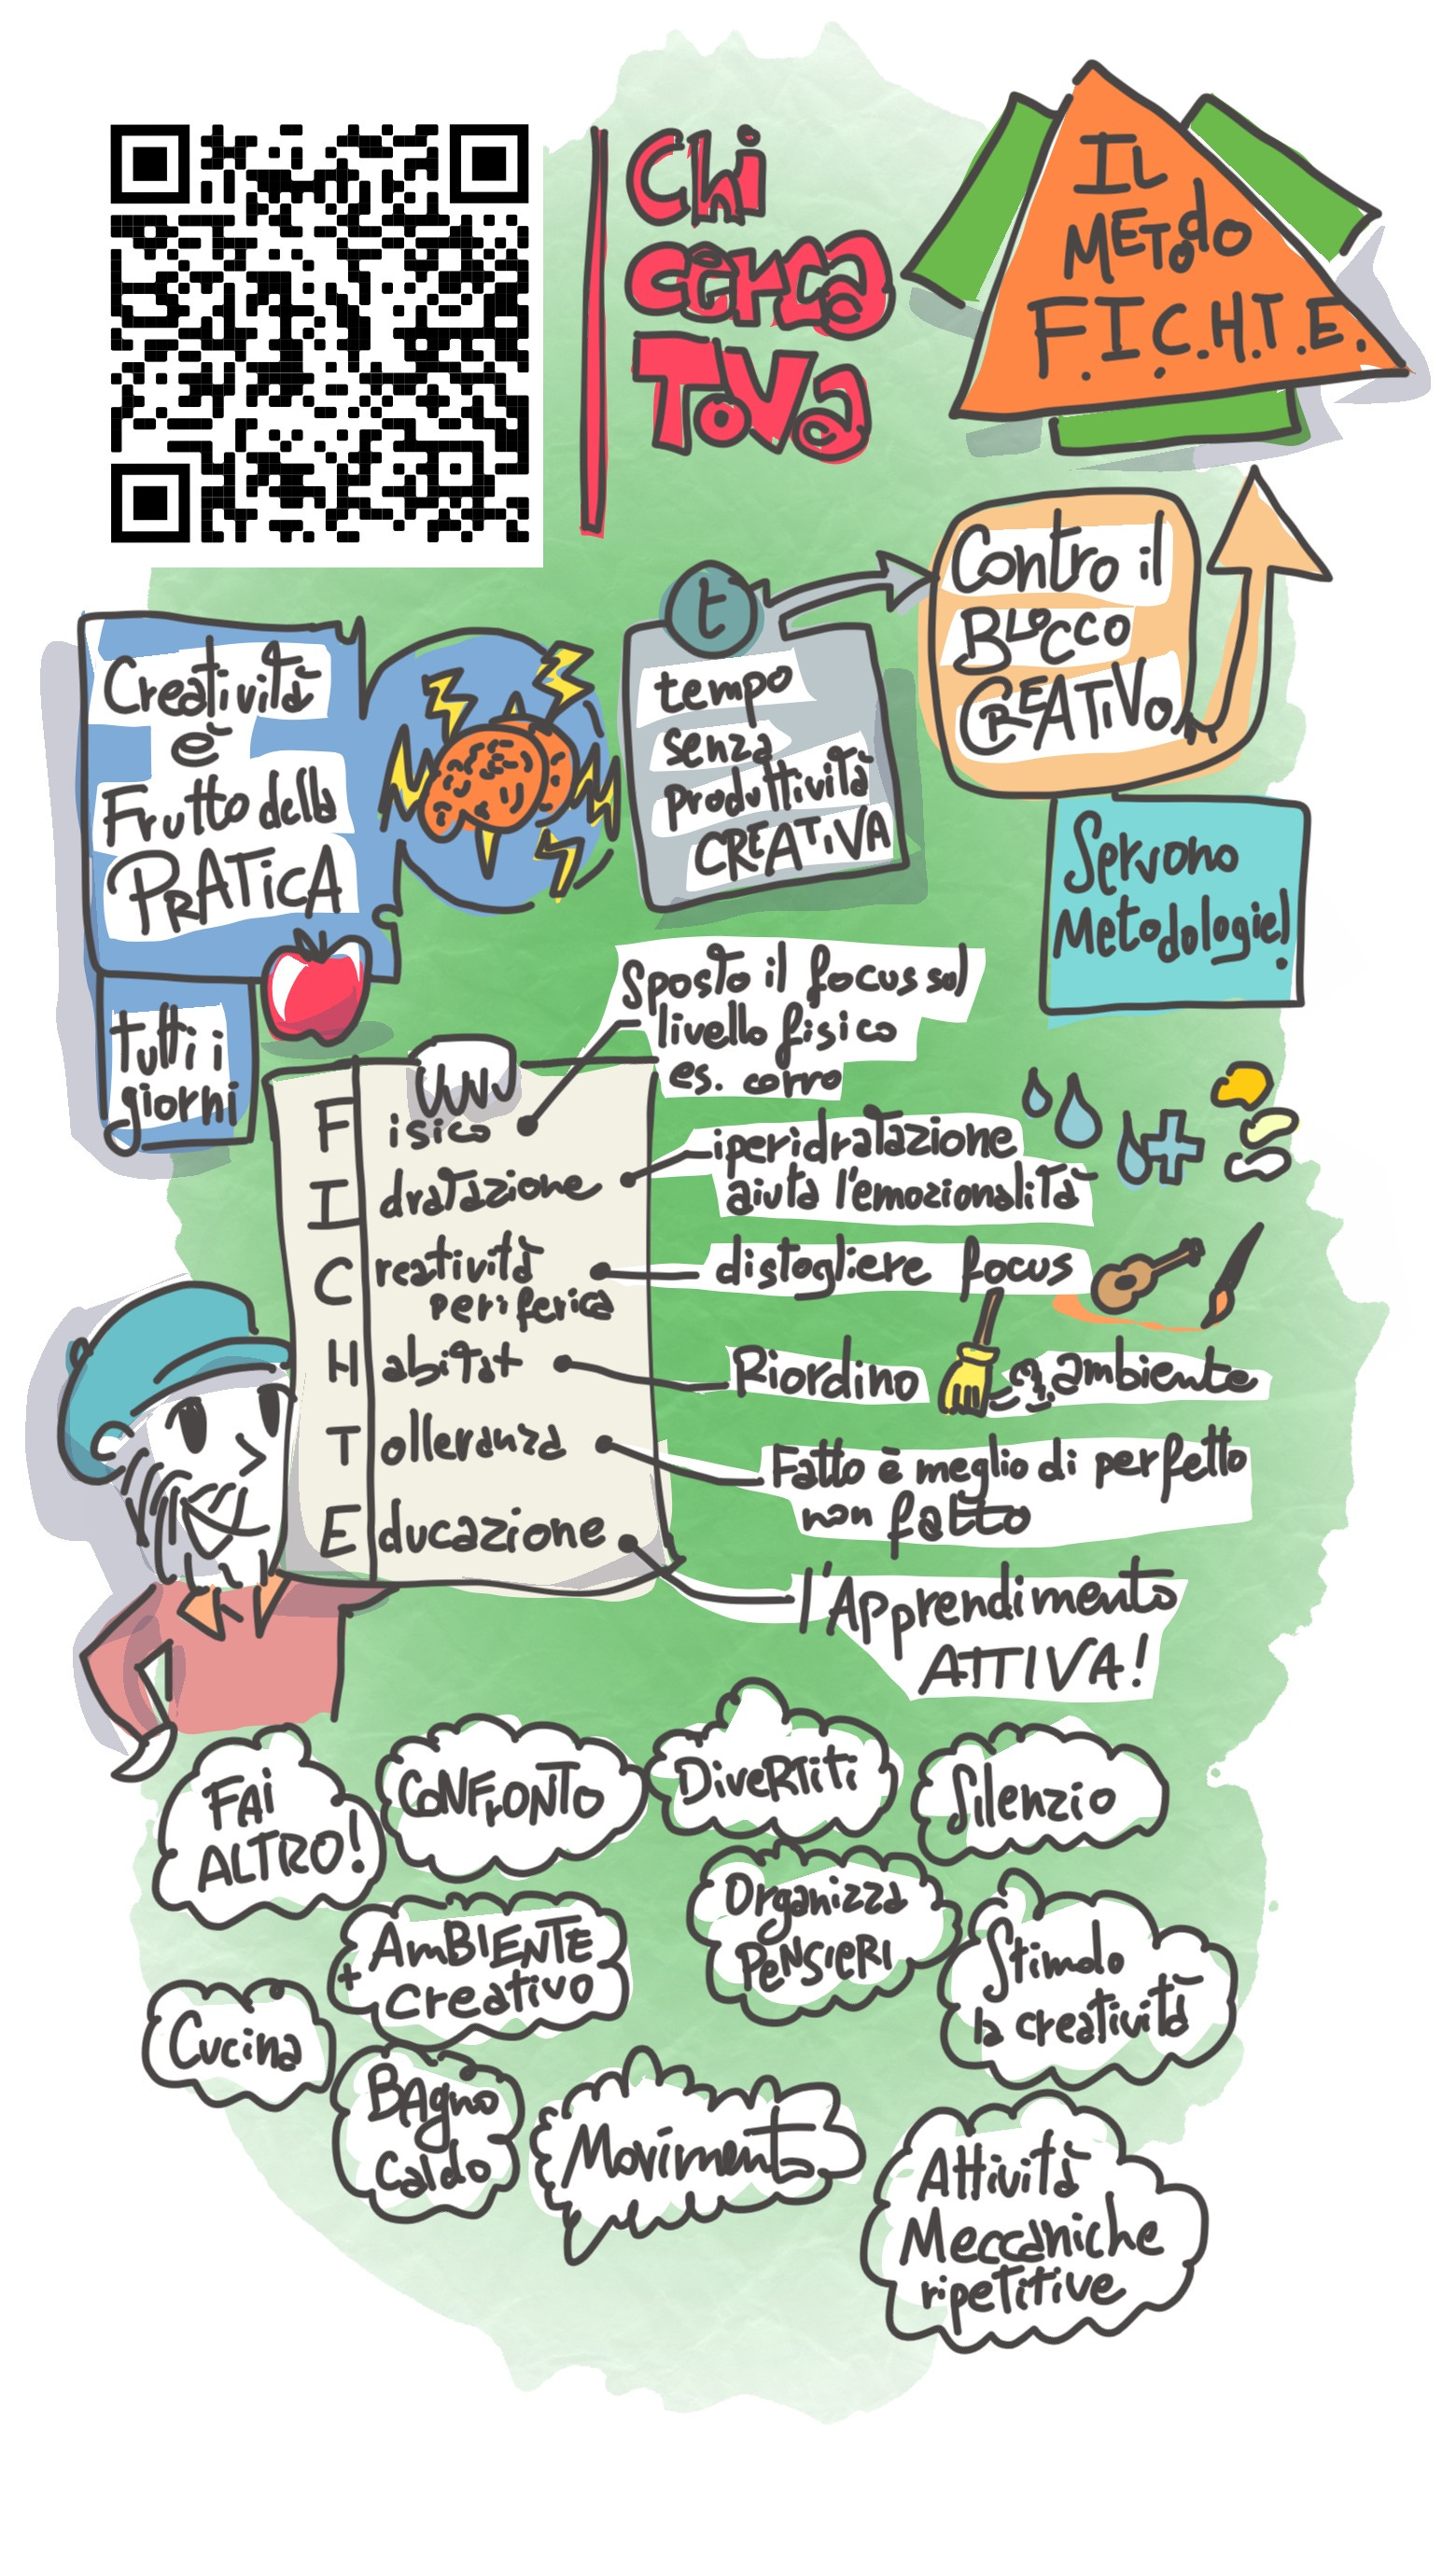 Chi
cerca
Tova
IL
METodo
F.I.C.H.T.E.
Contro il
BLOCCO
CREATIVO
t
tempo
senza
produttività
CREATIVA
Creatività
è
Frutto della
PRATICA
tutti i
giorni
Servono
Metodologie!
Sposto il focus sul
livello fisico
es. corro
Fisico
Idratazione
iperidratazione
aiuta l'emozionalità
Creatività
periferica
distogliere focus
Habitat
Riordino ambiente
Tolleranza
Fatto è meglio di perfetto
non fatto
Educazione
l'Apprendimento
ATTIVA!
FAI
ALTRO!
CONFrONTO
DiveRTiti
Silenzio
AmBIENTE
+ creativo
Organizza
PeNSIERI
Stimolo
la creatività
Cucina
BAgno
Caldo
Movimento
Attività
Meccaniche
ripetitive